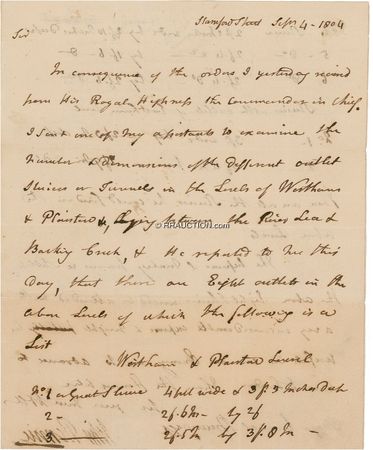 Stamford Street Sepr. 4 - 1804
Sir
In consequence of the orders I yesterday received
from His Royal Highness the Commander in Chief.
I sent one of My assistants to examine the
Number & Dimensions of the Different outlet
Sluices or Tunnels in the Levels of Westham
& Plaistow, Laying between the River Lea &
Barking Creek, & He reported to me this
Day, that there are Eight outlets in the
above Levels of which the following is a
List
Westham & Plaistow Level
No. 1 a Great Sluice 4 feet wide & 3 f. 5 Inches Deep
2 - 2f. 6In - by 2f
3 2f. 5In by 3f. 8In -
© RRAUCTION.COM